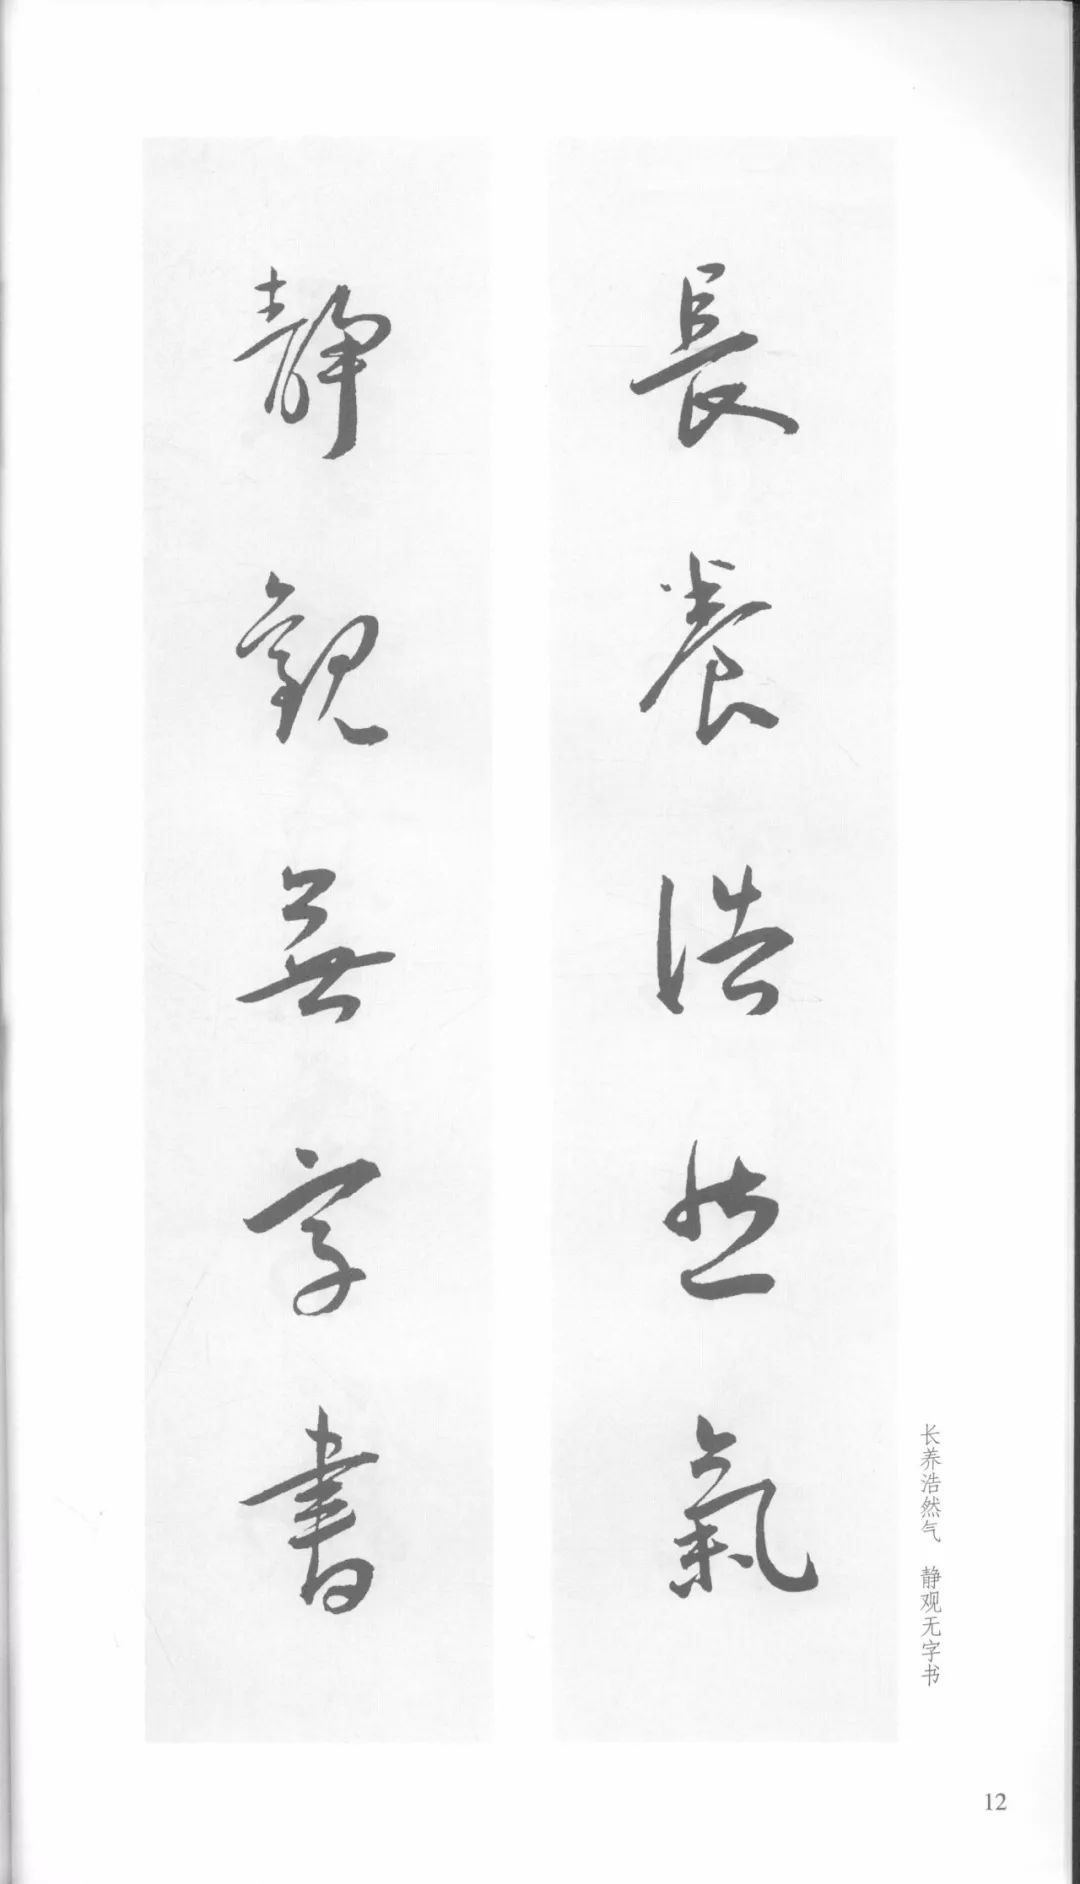 長養浩然氣
靜觀無字書
长养浩然气　静观无字书
12